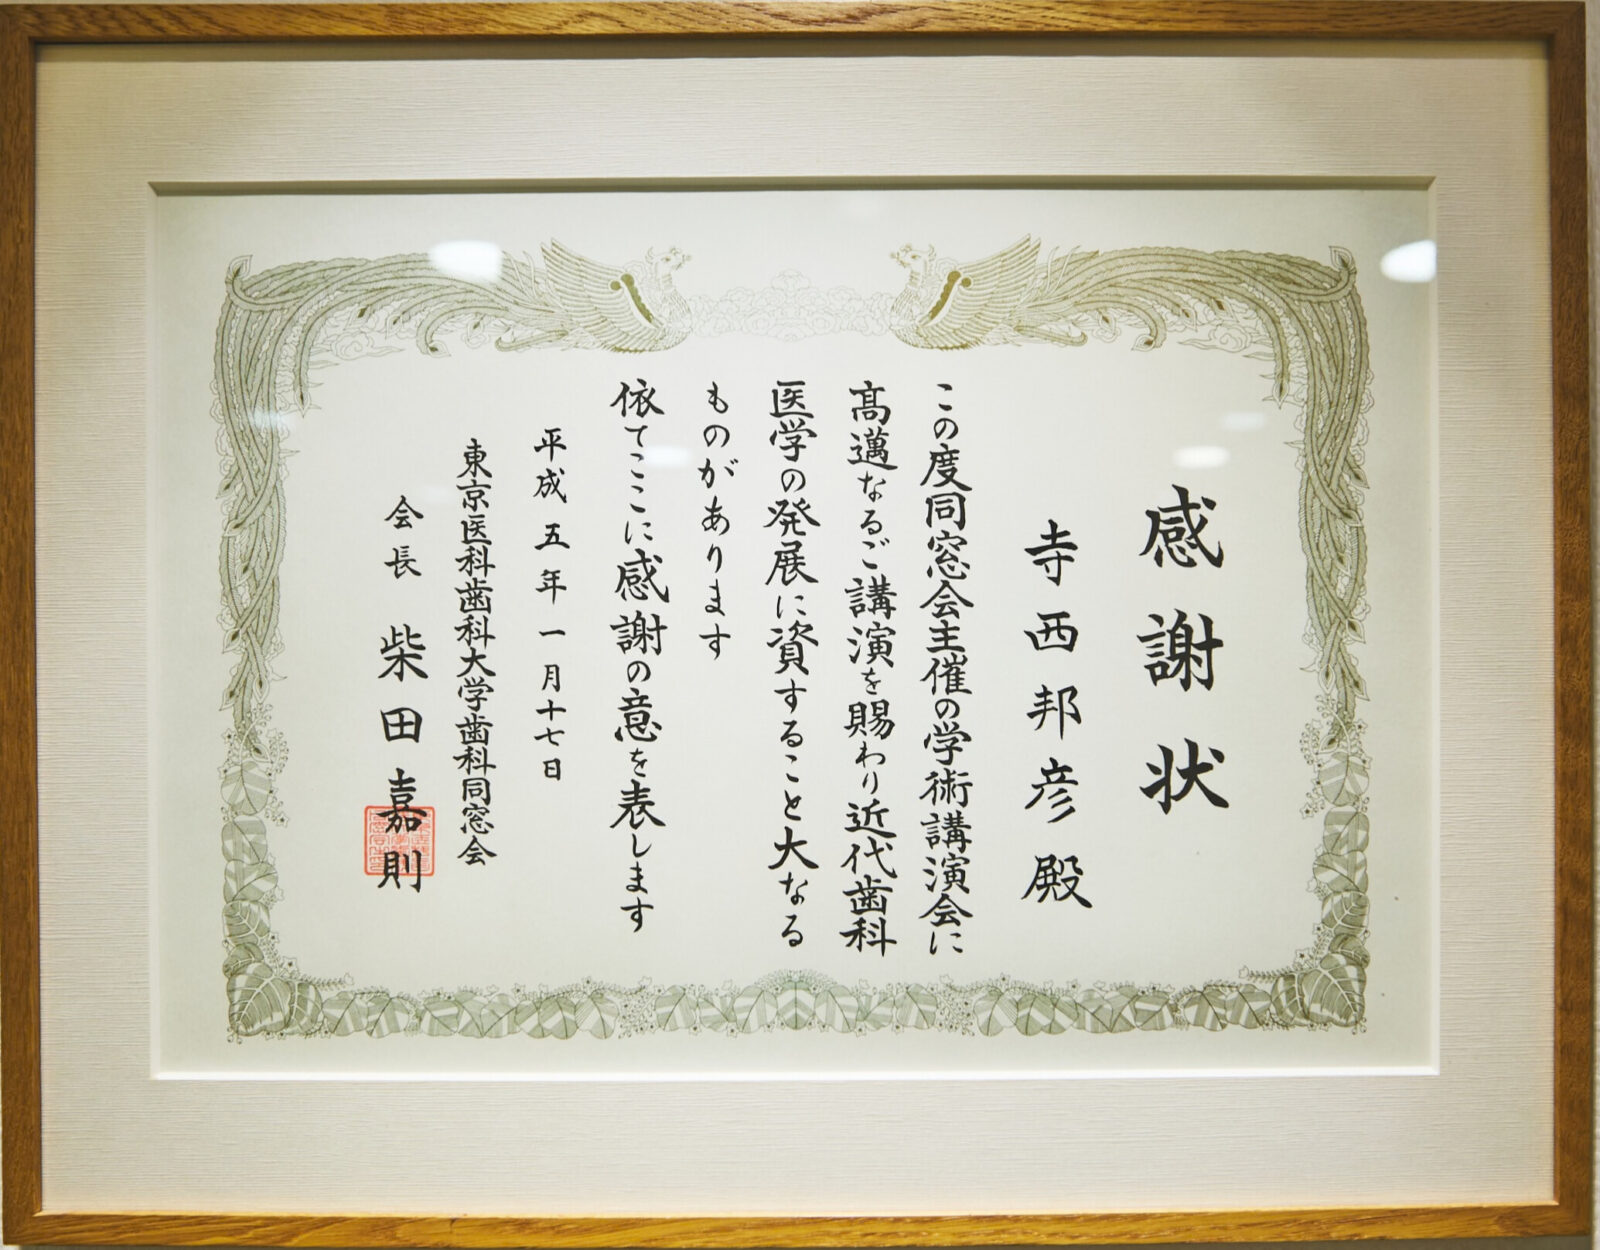 感謝状
寺西邦彦殿
この度同窓会主催の学術講演会に
高邁なるご講演を賜わり近代歯科
医学の発展に資すること大なる
ものがあります
依てここに感謝の意を表します
平成五年一月十七日
東京医科歯科大学歯科同窓会
会長 柴田嘉則